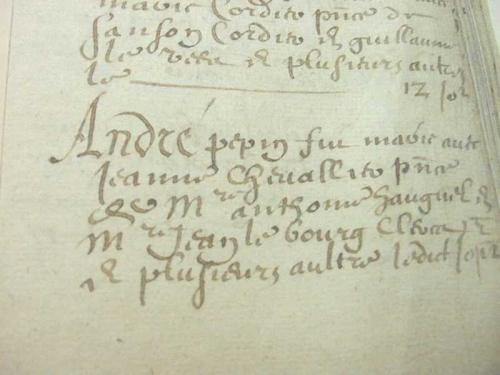 marié Cordito pñce de
sanson Cordito et guillaume
le et plusieurs aultre
le 12 jor
André pepin fut marié avec
Jeanne Chevallito pñce
de Mre anthoine hauguel et
Mre Jean le bourg Clercz
et plusieurs aultre ledict jor